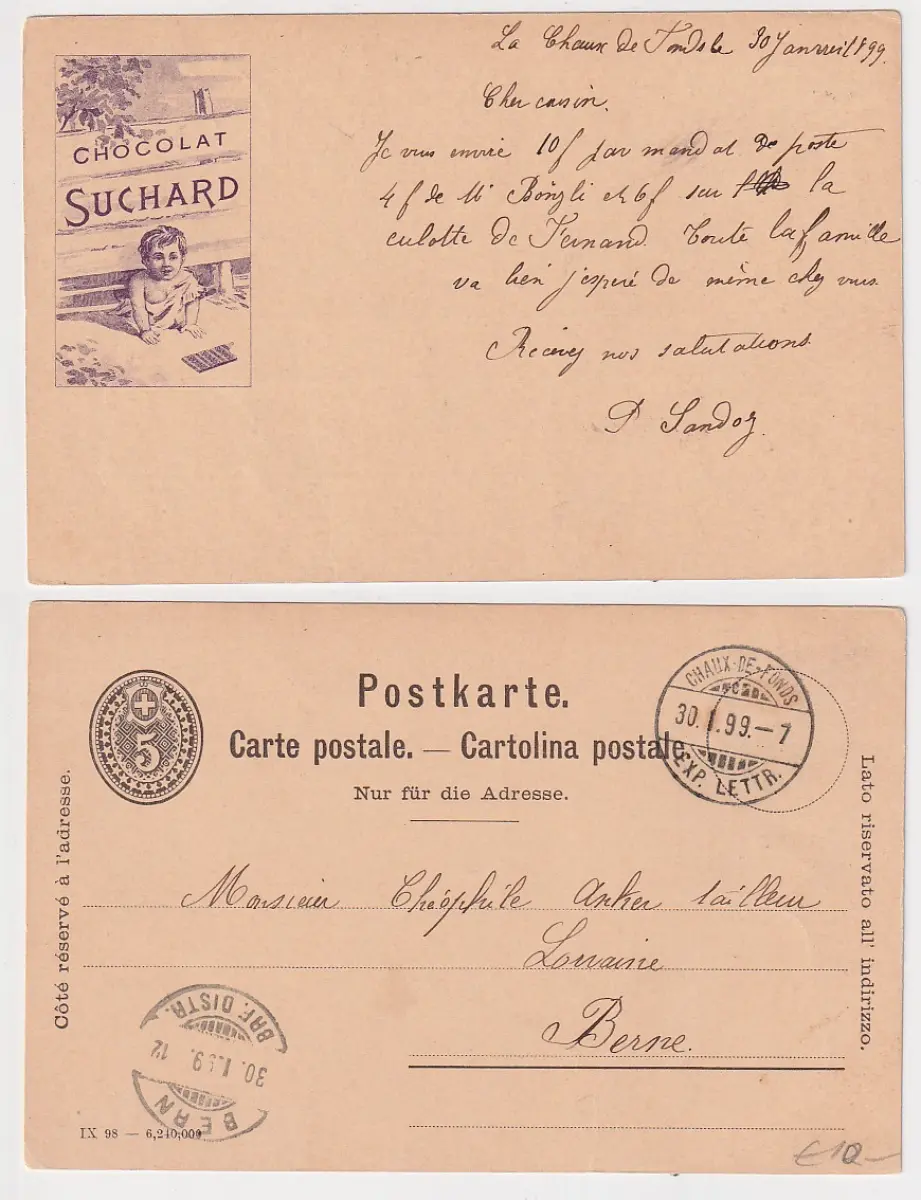 La Chaux de Fonds le 30 Janvreil 1899.
Cher cousin.
CHOCOLAT
SUCHARD
Je vous envoie 10 f par mandat de poste
4 f de Mr Bönzli et 6 f sur la
culotte de Fernand. Toute la famille
va bien j'esperé de même chez vous.
Recevez nos salutations
P Sandoz.
Postkarte.
Carte postale. — Cartolina postale.
Nur für die Adresse.
5
CHAUX-DE-FONDS
30.I.99.–7
EXP. LETTR.
Côté réservé à l'adresse.
Lato riservato all' indirizzo.
Monsieur Théophile Anker tailleur
Lorraine
Berne.
BRF. DISTR.
30.I.99. 12
BERN
IX 98 — 6,240,000
€ 10—